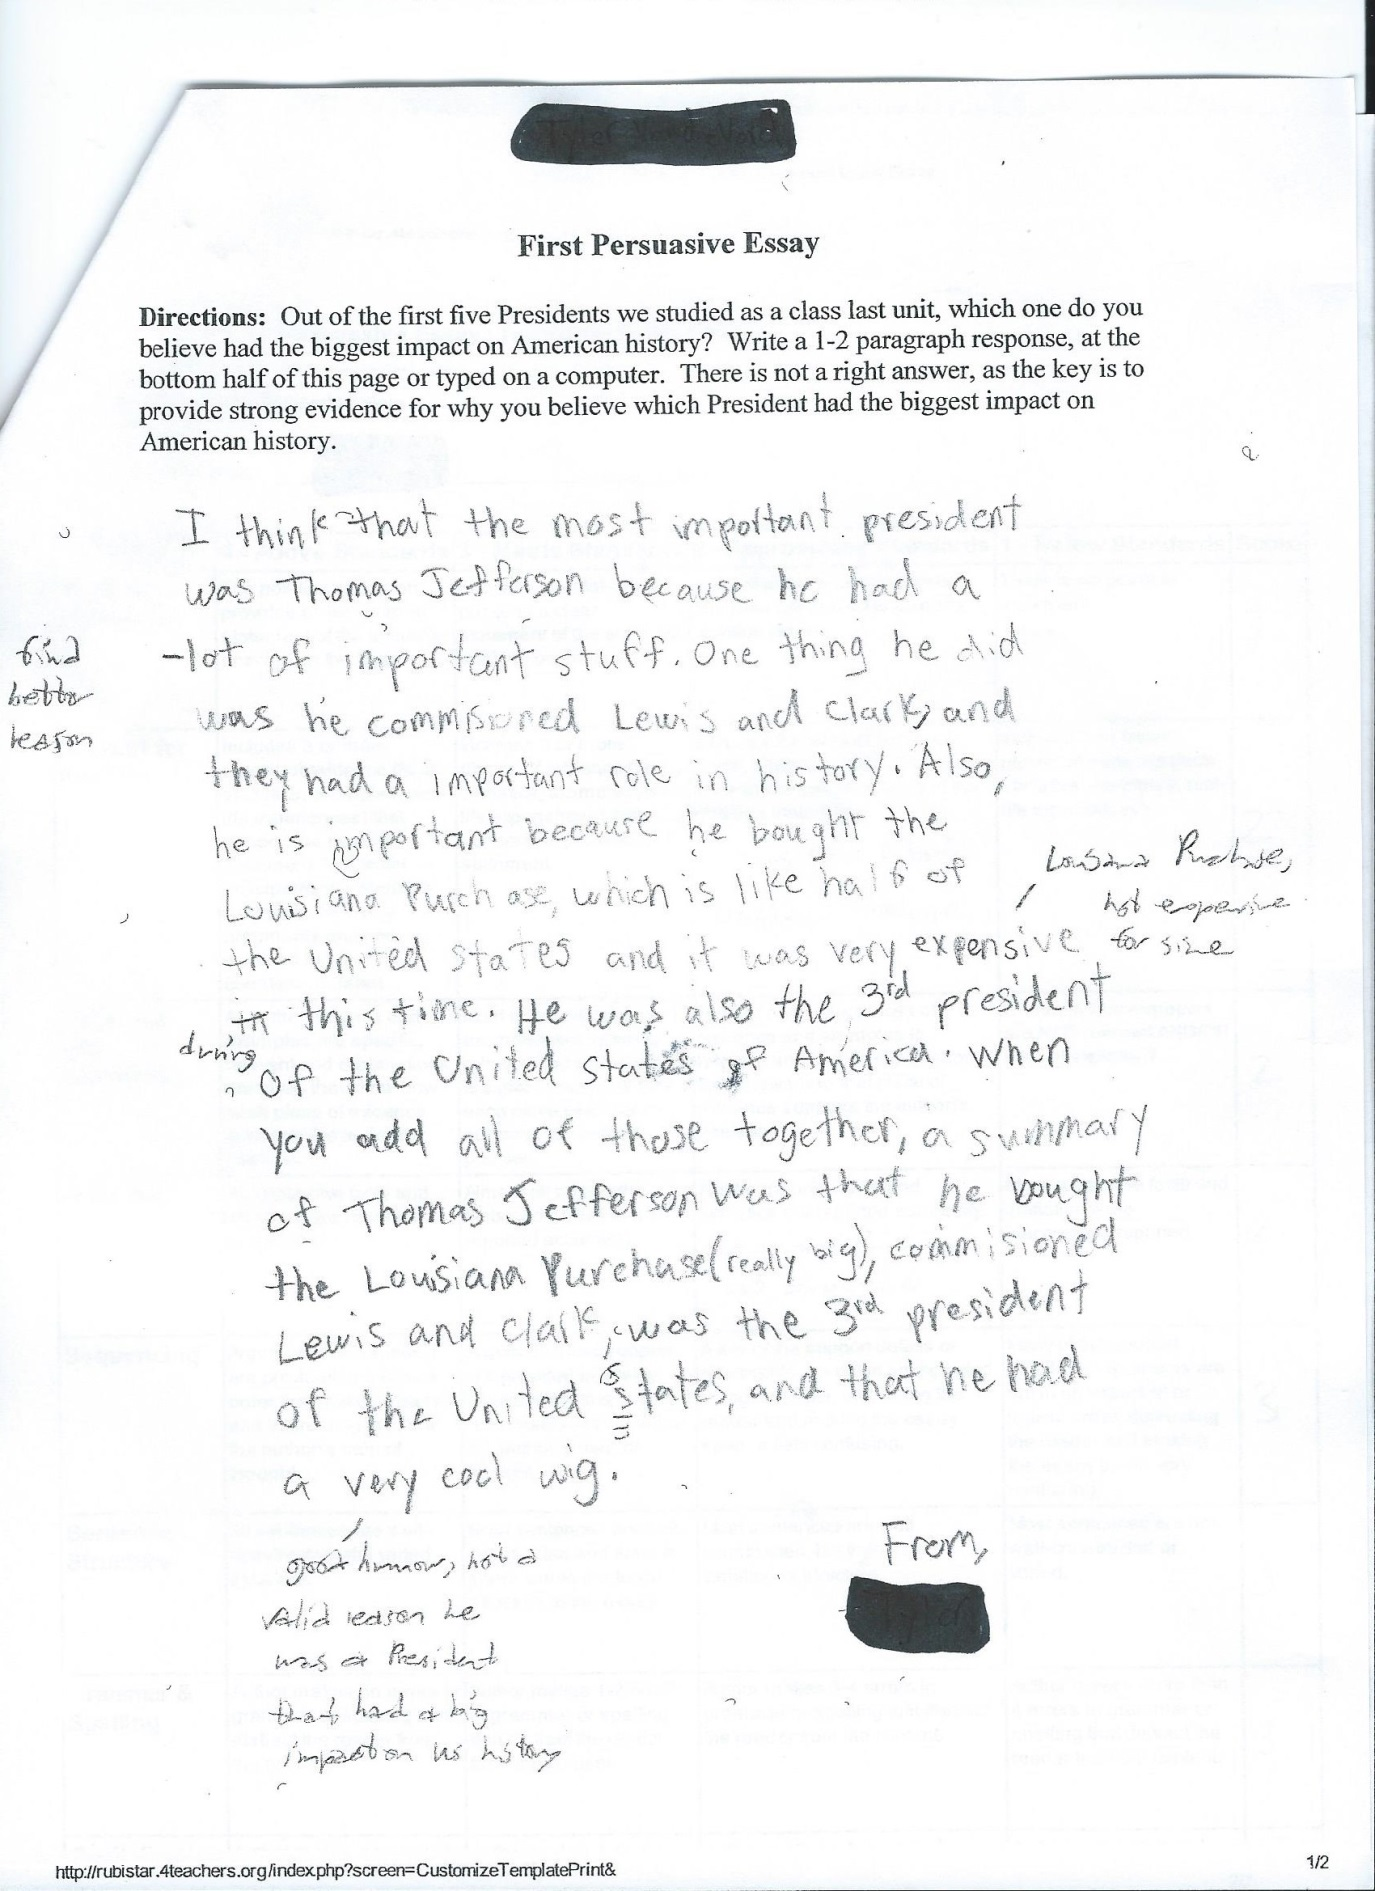 First Persuasive Essay
Directions: Out of the first five Presidents we studied as a class last unit, which one do you
believe had the biggest impact on American history? Write a 1-2 paragraph response, at the
bottom half of this page or typed on a computer. There is not a right answer, as the key is to
provide strong evidence for why you believe which President had the biggest impact on
American history.
I think that the most important president
was Thomas Jefferson because he had a
lot of important stuff. One thing he did
find
better
reason
was he commisioned Lewis and Clark, and
they had a important role in history. Also,
he is important because he bought the
Louisiana Purchase, which is like half of
the United States and it was very expensive
Purchase,
not expensive
for size
in this time. He was also the 3rd president
during
of the United States of America. When
you add all of those together, a summary
of Thomas Jefferson was that he bought
the Louisiana Purchase (really big), commisioned
Lewis and Clark, was the 3rd president
of the United States, and that he had
a very cool wig.
good humor, not a
valid reason he
was a President
that had a big
impact on US history
From,
http://rubistar.4teachers.org/index.php?screen=CustomizeTemplatePrint&
1/2